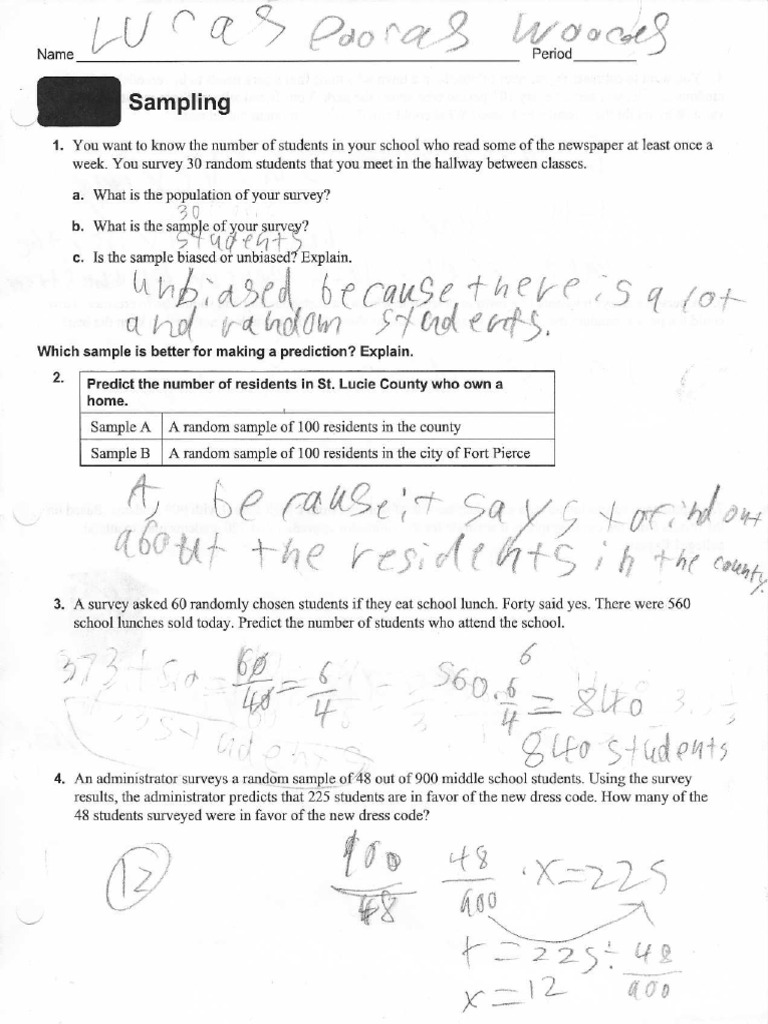 Name Lucas Period
Sampling
1. You want to know the number of students in your school who read some of the newspaper at least once a
week. You survey 30 random students that you meet in the hallway between classes.
a. What is the population of your survey?
30
b. What is the sample of your survey?
students
c. Is the sample biased or unbiased? Explain.
Unbiased, because there is a lot
and random students.
Which sample is better for making a prediction? Explain.
2. Predict the number of residents in St. Lucie County who own a
home.
Sample A A random sample of 100 residents in the county
Sample B A random sample of 100 residents in the city of Fort Pierce
A, because it says to find out
about the residents in the county.
3. A survey asked 60 randomly chosen students if they eat school lunch. Forty said yes. There were 560
school lunches sold today. Predict the number of students who attend the school.
60/40 = 6/4 560 · 6/4 = 840
6
840 students
4. An administrator surveys a random sample of 48 out of 900 middle school students. Using the survey
results, the administrator predicts that 225 students are in favor of the new dress code. How many of the
48 students surveyed were in favor of the new dress code?
12 900/48 48/900 · x = 225
x = 225 ÷ 48/900
x = 12